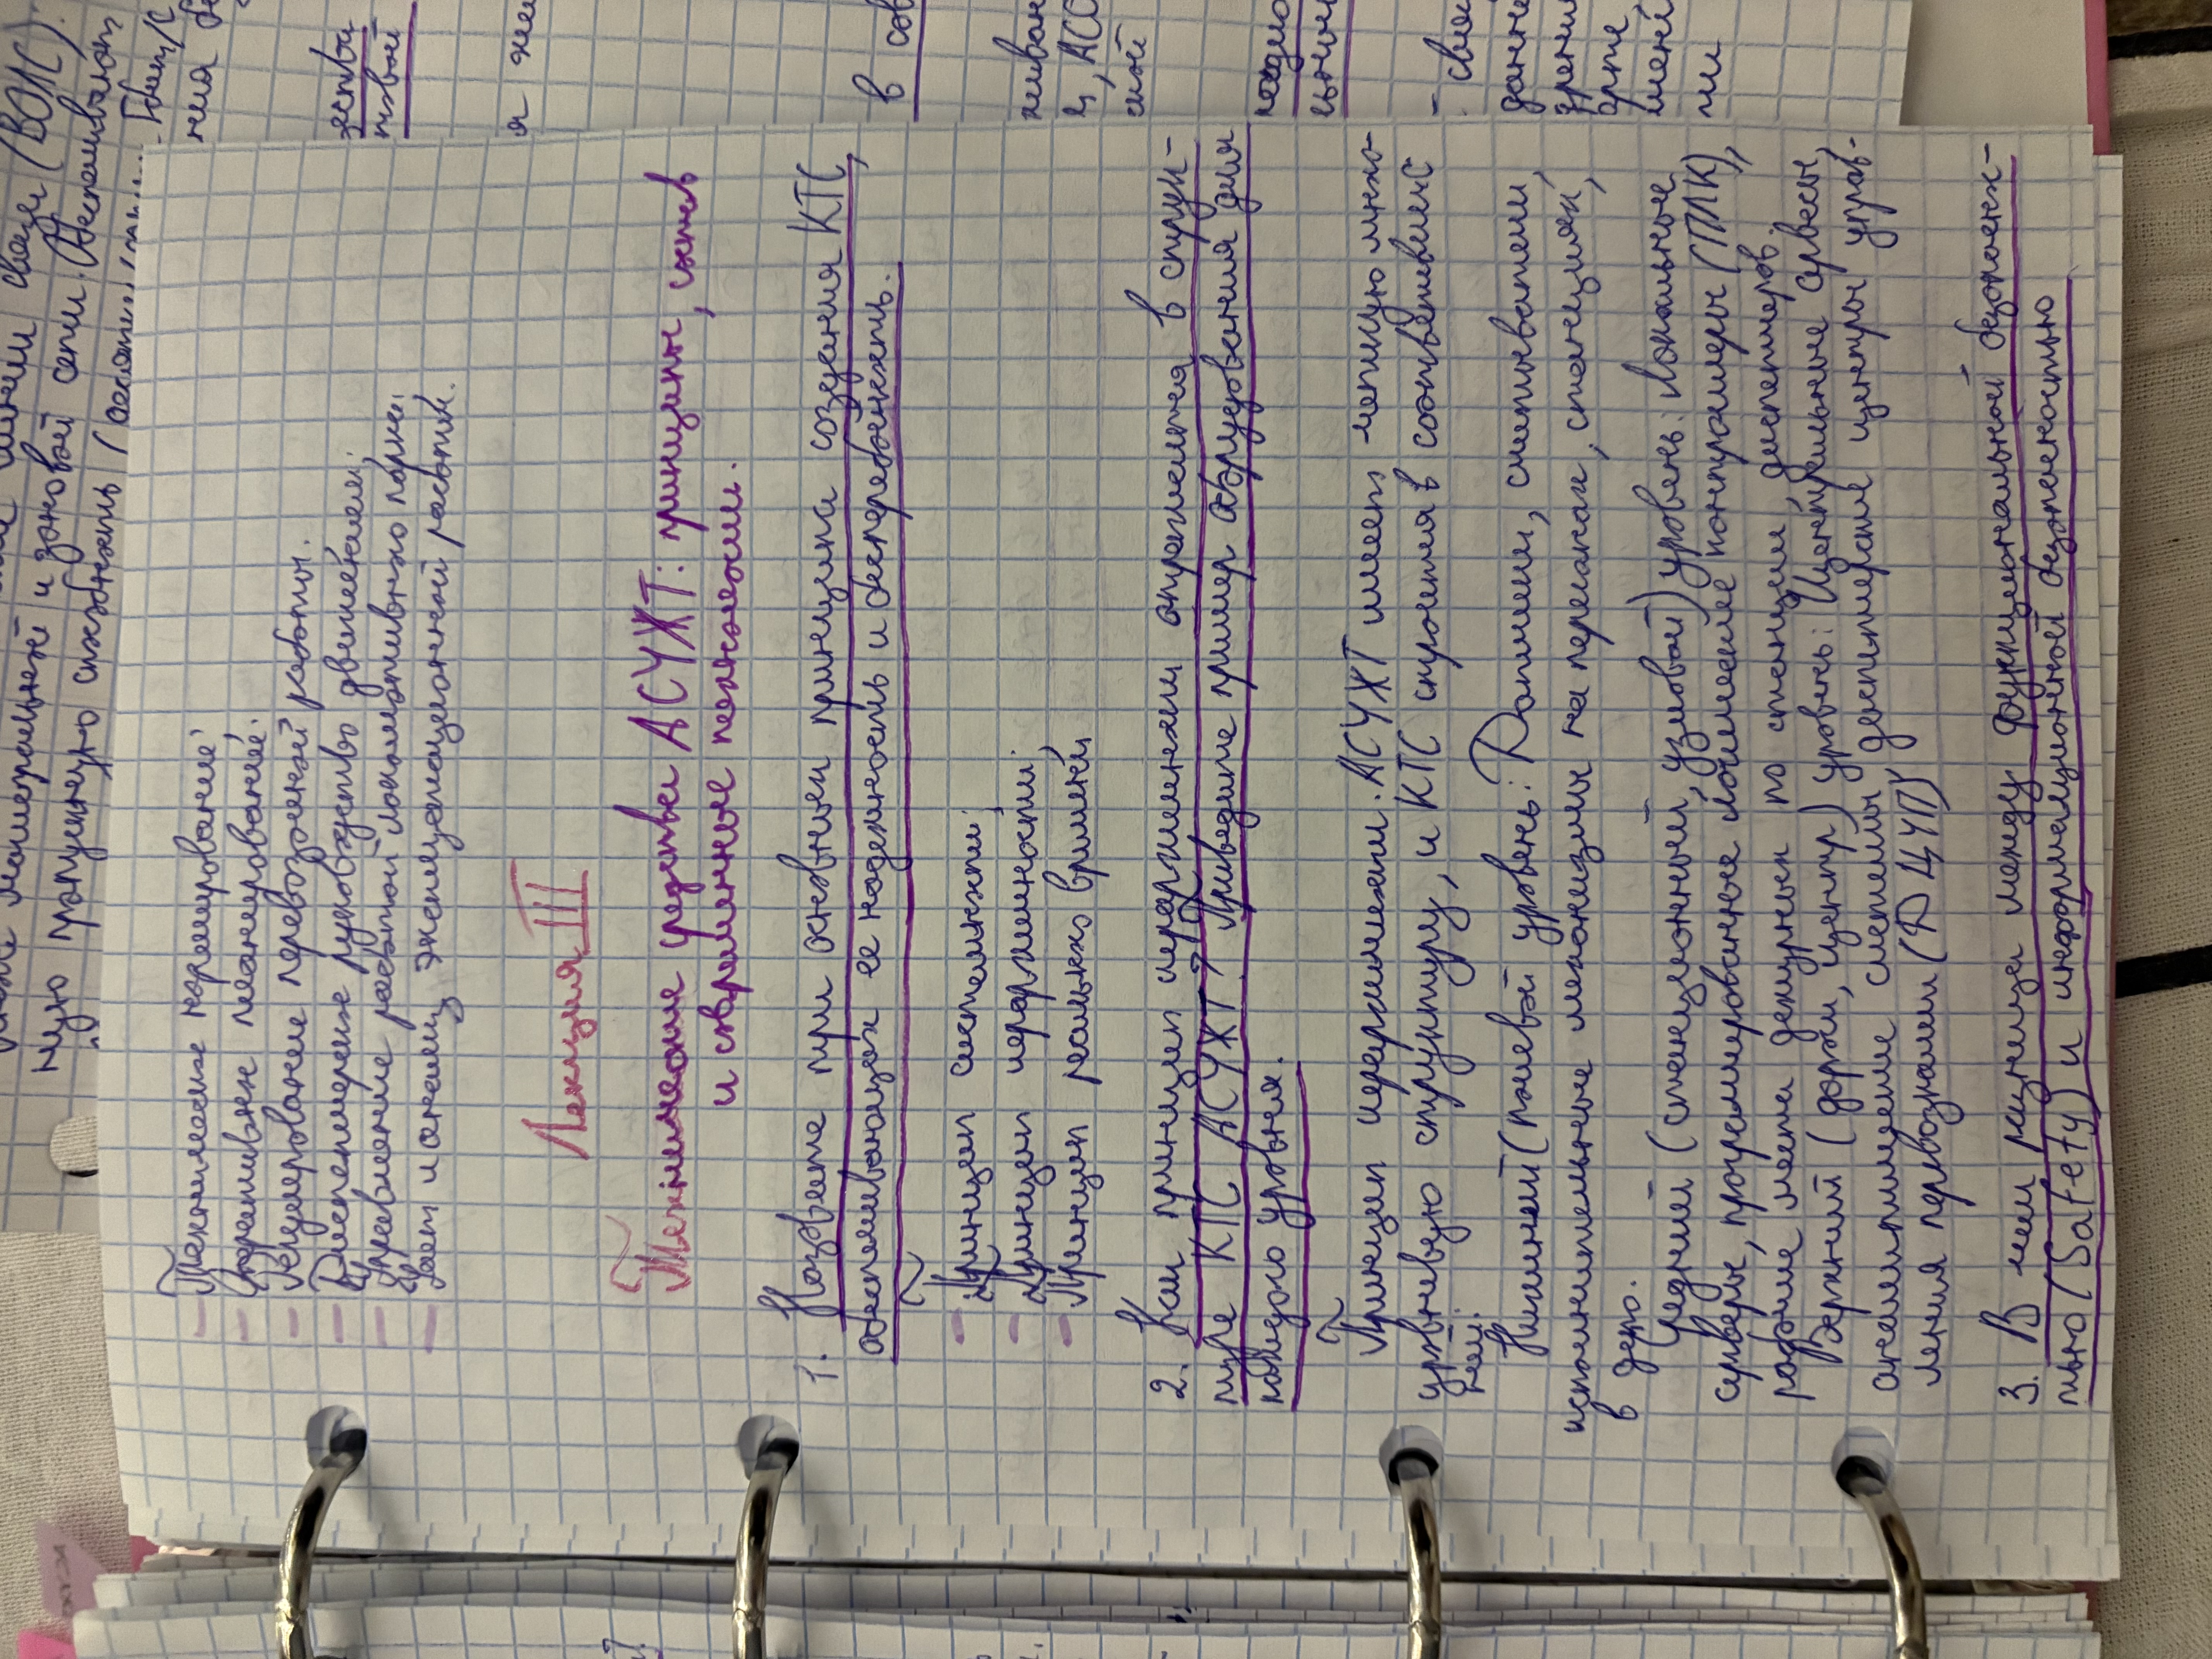 - Техническое нормирование;
- Оперативное планирование;
- Регулирование перевозочной работы.
- Диспетчерское руководство движением;
- Управление работой локомотивного парка;
- Учет и анализ эксплуатационной работы.
Лекция III
Технические средства АСУЖТ: принципы, состав
и современные технологии.
1. Назовите три основных принципа создания КТС,
обеспечивающих ее надежность и бесперебойность.
- Принцип системности;
- Принцип иерархичности;
- Принцип реального времени;
2. Как принцип иерархичности отражается в струк-
туре КТС АСУЖТ? Приведите пример оборудования для
каждого уровня.
Принцип иерархичности. АСУЖТ имеет четкую много-
уровневую структуру, и КТС строится в соответствии с
ней:
Нижний (полевой уровень: Датчики, считыватели,
исполнительные механизмы на перегонах, станциях,
в депо.
Средний (станционный, узловой) уровень: Локальные
серверы, программированные логические контроллеры (ПЛК),
рабочие места дежурных по станции, диспетчеров.
Верхний (дорожн, центр) уровень: Центральные серверы,
аналитические системы, диспетчерские центры управ-
ления перевозками (ДЦУП)
3. В чем разница между функциональной безопаснос-
тью (Safety) и информационной безопасностью